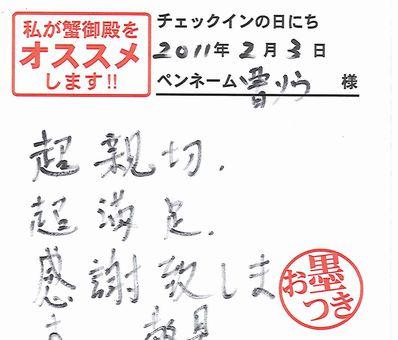 私が蟹御殿を
オススメ
します!!
チェックインの日にち
2011年2月3日
ペンネーム 様
超親切.
超満足.
感謝致しま
お墨
つき